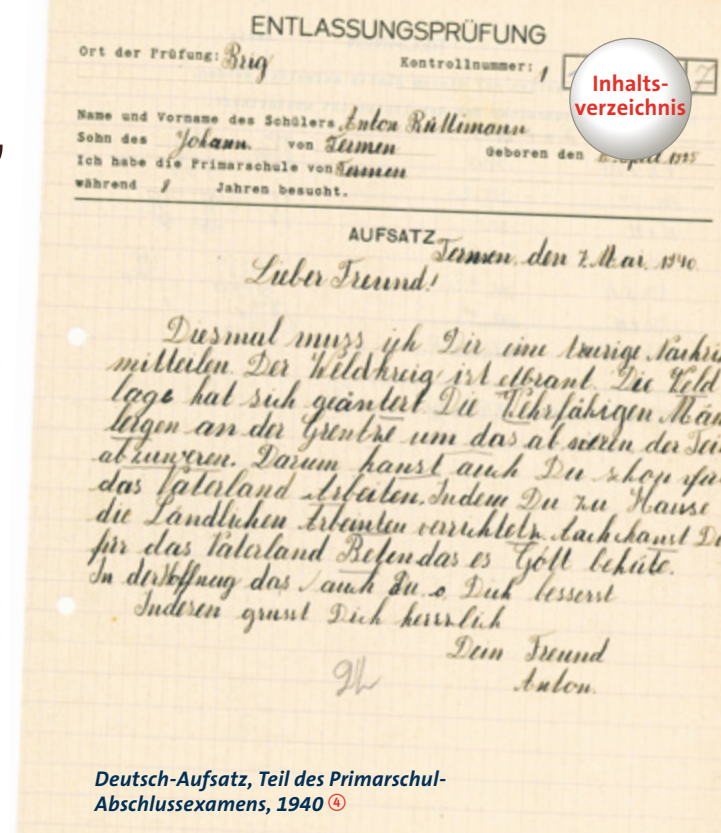 ENTLASSUNGSPRÜFUNG
Ort der Prüfung: Brig
Kontrollnummer: 1
7
Inhalts-
verzeichnis
Name und Vorname des Schülers Anton Rüttimann
Sohn des Johann von Termen
Geboren den April 1925
Ich habe die Primarschule von Termen
während 8 Jahren besucht.
AUFSATZ
Termen, den 7. Mai 1940
Lieber Freund!
Diesmal muss ich Dir eine traurige Nachri
mitteilen. Der Weldkreig ist elbrant. Die Veld
lage hat sich geäntert. Die Wehrfähigen Män
an der Grentze um das der Fei
Darum kanst auch Du schon für
das Vaterland Arbeiten. Indem Du zu Hause
die Ländlichen Arbeinten verrichtetn. Auch kanst Du
für das Vaterland Beten das es Gott behüte.
In der Hoffnug das auch Du Dich besserst
Inderen grusst Dich herrzlich
Dein Freund
Anton.
Deutsch-Aufsatz, Teil des Primarschul-
Abschlussexamens, 1940 ④